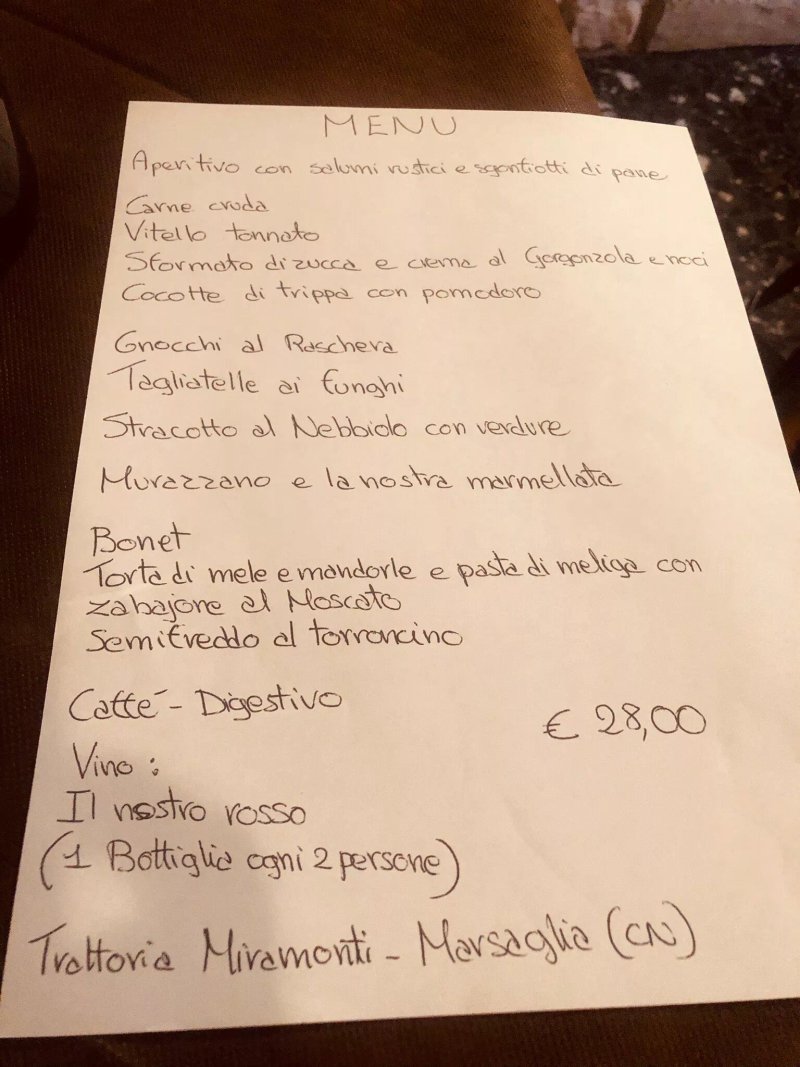 MENU
Aperitivo con salumi rustici e sgonfiotti di pane
Carne cruda
Vitello tonnato
Sformato di zucca e crema al Gorgonzola e noci
Cocotte di trippa con pomodoro
Gnocchi al Raschera
Tagliatelle ai funghi
Stracotto al Nebbiolo con verdure
Murazzano e la nostra marmellata
Bonet
Torta di mele e mandorle e pasta di meliga con
zabajone al Moscato
Semifreddo al torroncino
Caffé - Digestivo
€ 28,00
Vino :
Il nostro rosso
(1 Bottiglia ogni 2 persone)
Trattoria Miramonti - Marsaglia (CN)